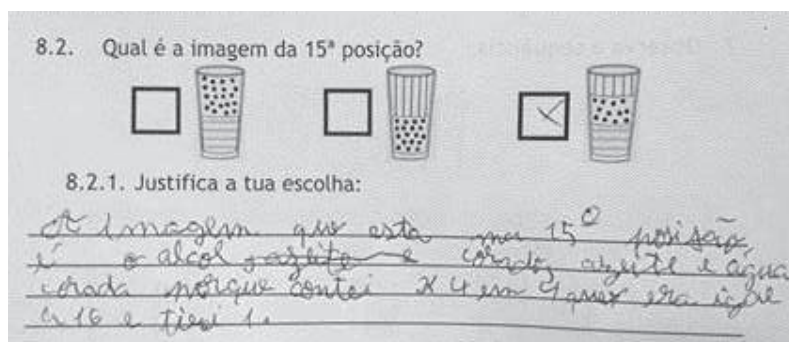 8.2. Qual é a imagem da 15ª posição?
8.2.1. Justifica a tua escolha:
A imagem que esta na 15º posisão
é o alcol, azeite e corado, azeite e água
corada porque contei x 4 em 4 que era igual
a 16 e tirei 1.